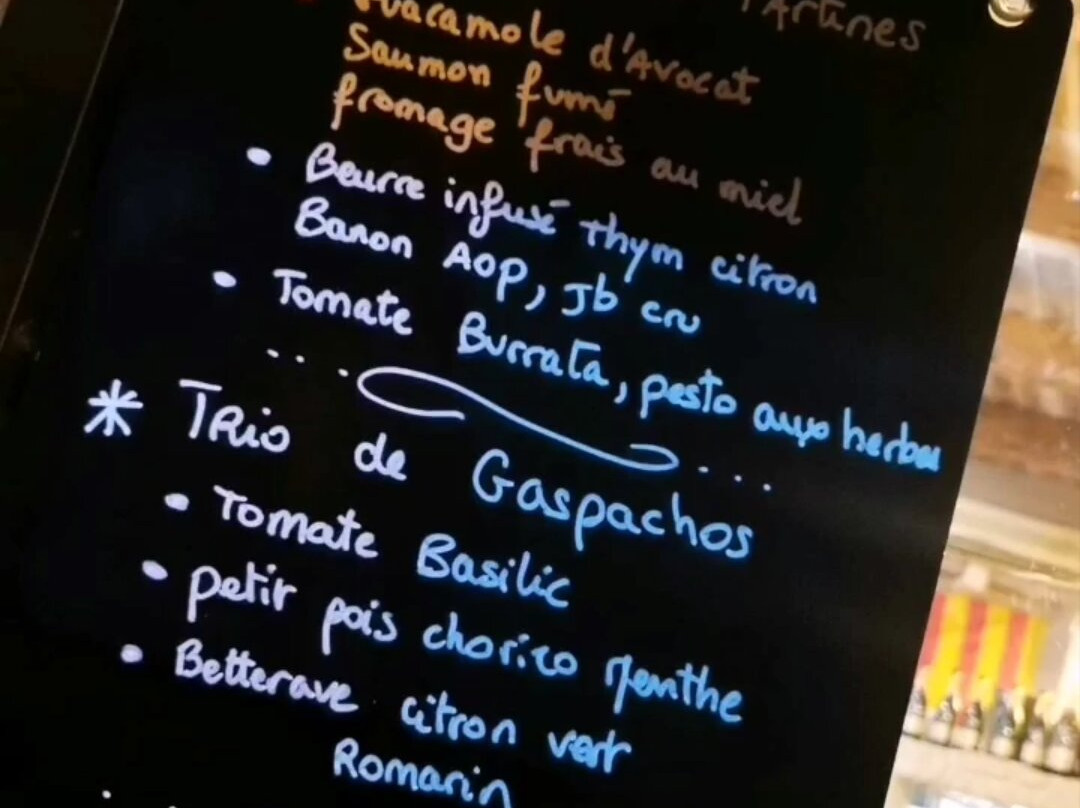 Tartines
Guacamole d'Avocat
Saumon fumé
fromage frais au miel
• Beurre infusé thym citron
Banon AOP, Jb cru
• Tomate Burrata, pesto aux herbes
* TRio de Gaspachos
• Tomate Basilic
• petit pois chorizo Menthe
• Betterave citron vert
Romarin